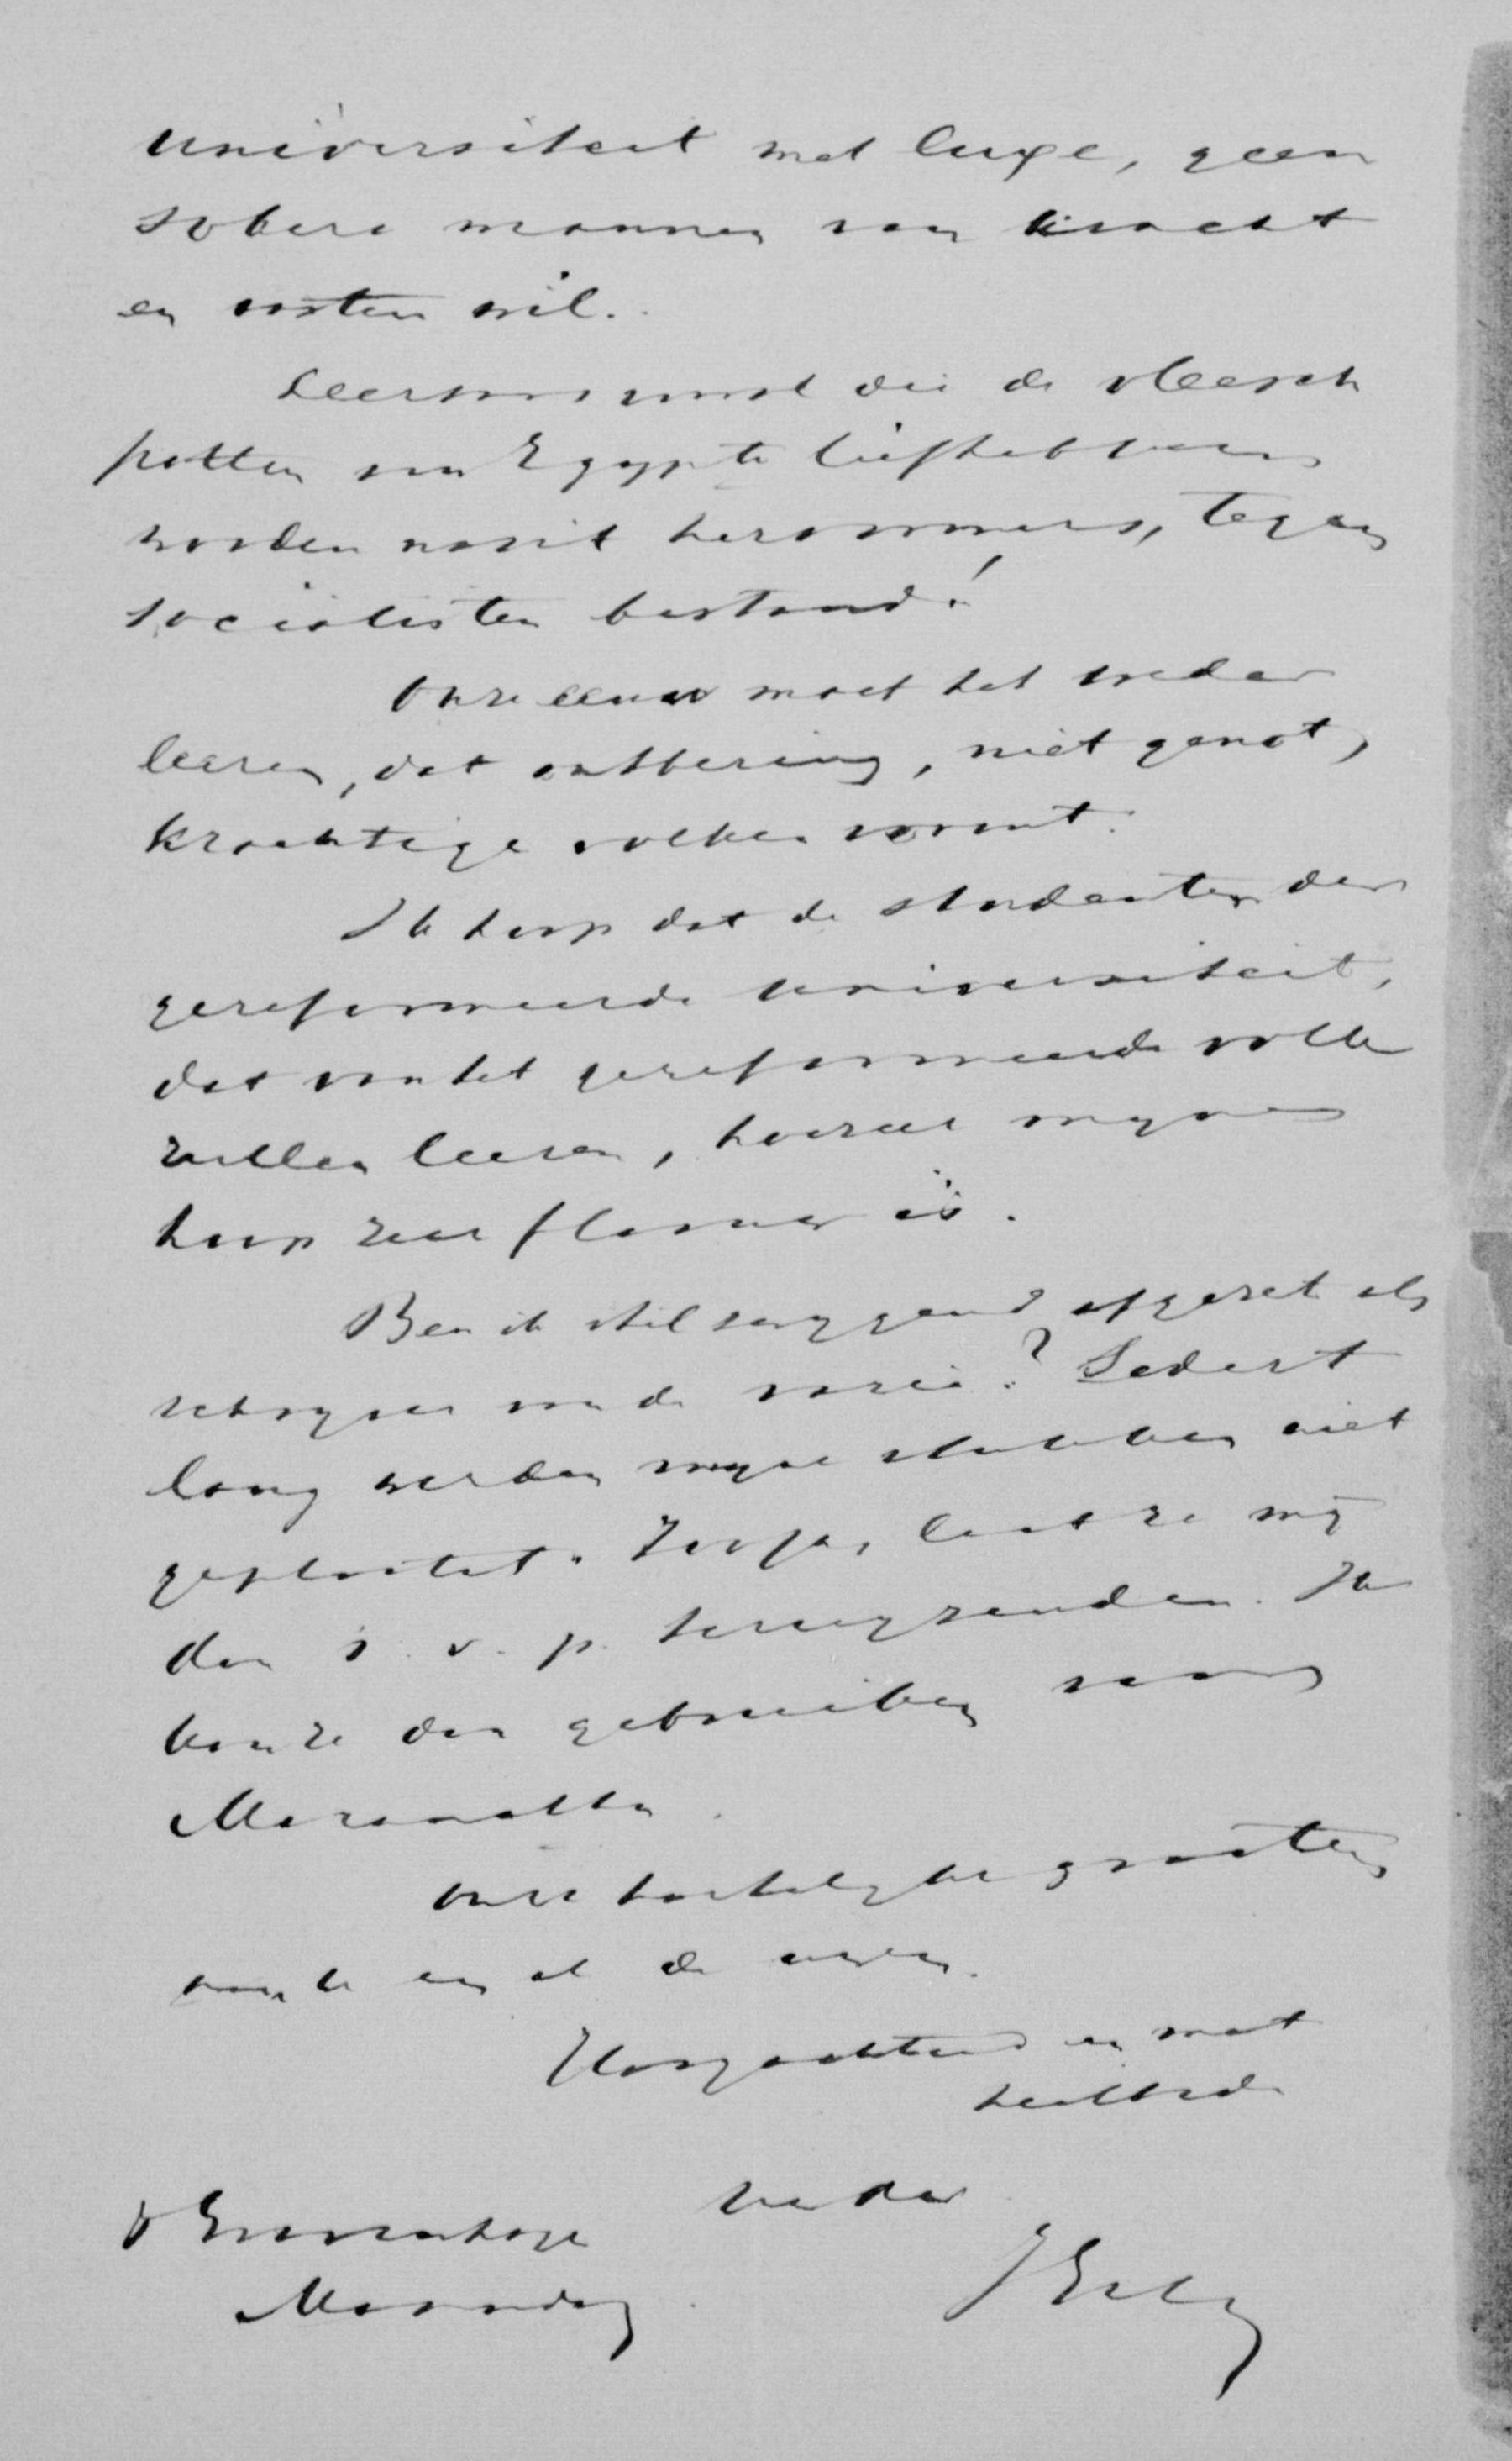 universiteit met luxe, geen
sobere mannen van kracht
en vasten wil.
die de vleesch
potten van Egypte liefhebben
worden nooit heroïnnen, tegen
socialisten bestand!
Onze eeuw moet het weder
leeren, dat ontbering, niet genot,
krachtige volken vormt.
Ik hoop dat de studenten der
gereformeerde universiteit,
dat van het gereformeerde volk
zullen leeren, hoezeer mijne
hoop zeer flauw is.
Ben ik stilzwijgend afgezet als
schryver van de varia? Sedert
lang werden myne stukken niet
geplaatst. Zoo ja, laat ze mij
dan s. v. p. terugzenden. Ik
kan ze dan gebruiken voor
Maranatha.
Onze hartelyke groeten
aan U en al de uwen.
Hoogachtend en met
heilbede
Uw dw
's Gravenhage
Maandag